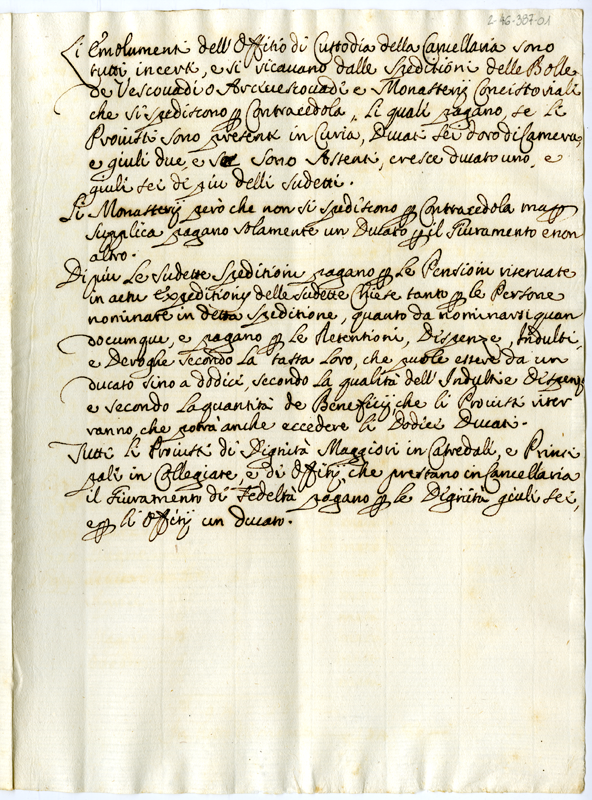 2-46-387-01
Li Emolumenti dell'Offitio di Custodia della Cancellaria sono
tutti incerti, e si ricavano dalle Speditioni delle Bolle
de Vescovadi o Arcivescovadi e Monasterij Concistoriali
che si spediscono p Contracedola, li quali pagano, se li
Provisti sono presenti in Curia, Ducati sei d'oro di Camera,
e giulij due, e se sono Assenti, cresce ducato uno, e
giulij sei di più delli sudetti.
Li Monasterij però che non si spediscono p Contracedola ma p
supplica pagano solamente un Ducato p il Giuramento e non
altro.
Di più Le sudette Speditioni pagano p Le Pensioni riservate
in actu Expeditionis delle sudette Chiese tanto p le Persone
nominate in detta Speditione, quanto da nominarsi quan
documque, e pagano p Le Retentioni, Dispenze, Indulti,
e Deroghe secondo La tassa Loro, che puole essere da un
ducato sino a dodici, secondo La qualità dell'Indulti e Dispenze
e secondo La quantità de Beneficij che li Provisti riter
ranno, che potrà anche eccedere li Dodici Ducati.
Tutti li Provisti di Dignità Maggiori in Catedrali, e Princi
pali in Collegiate, e di Offitij, che prestano in Cancellaria
il Giuramento di Fedeltà pagano p le Dignità giulij sei,
e p li Offitij un ducato.